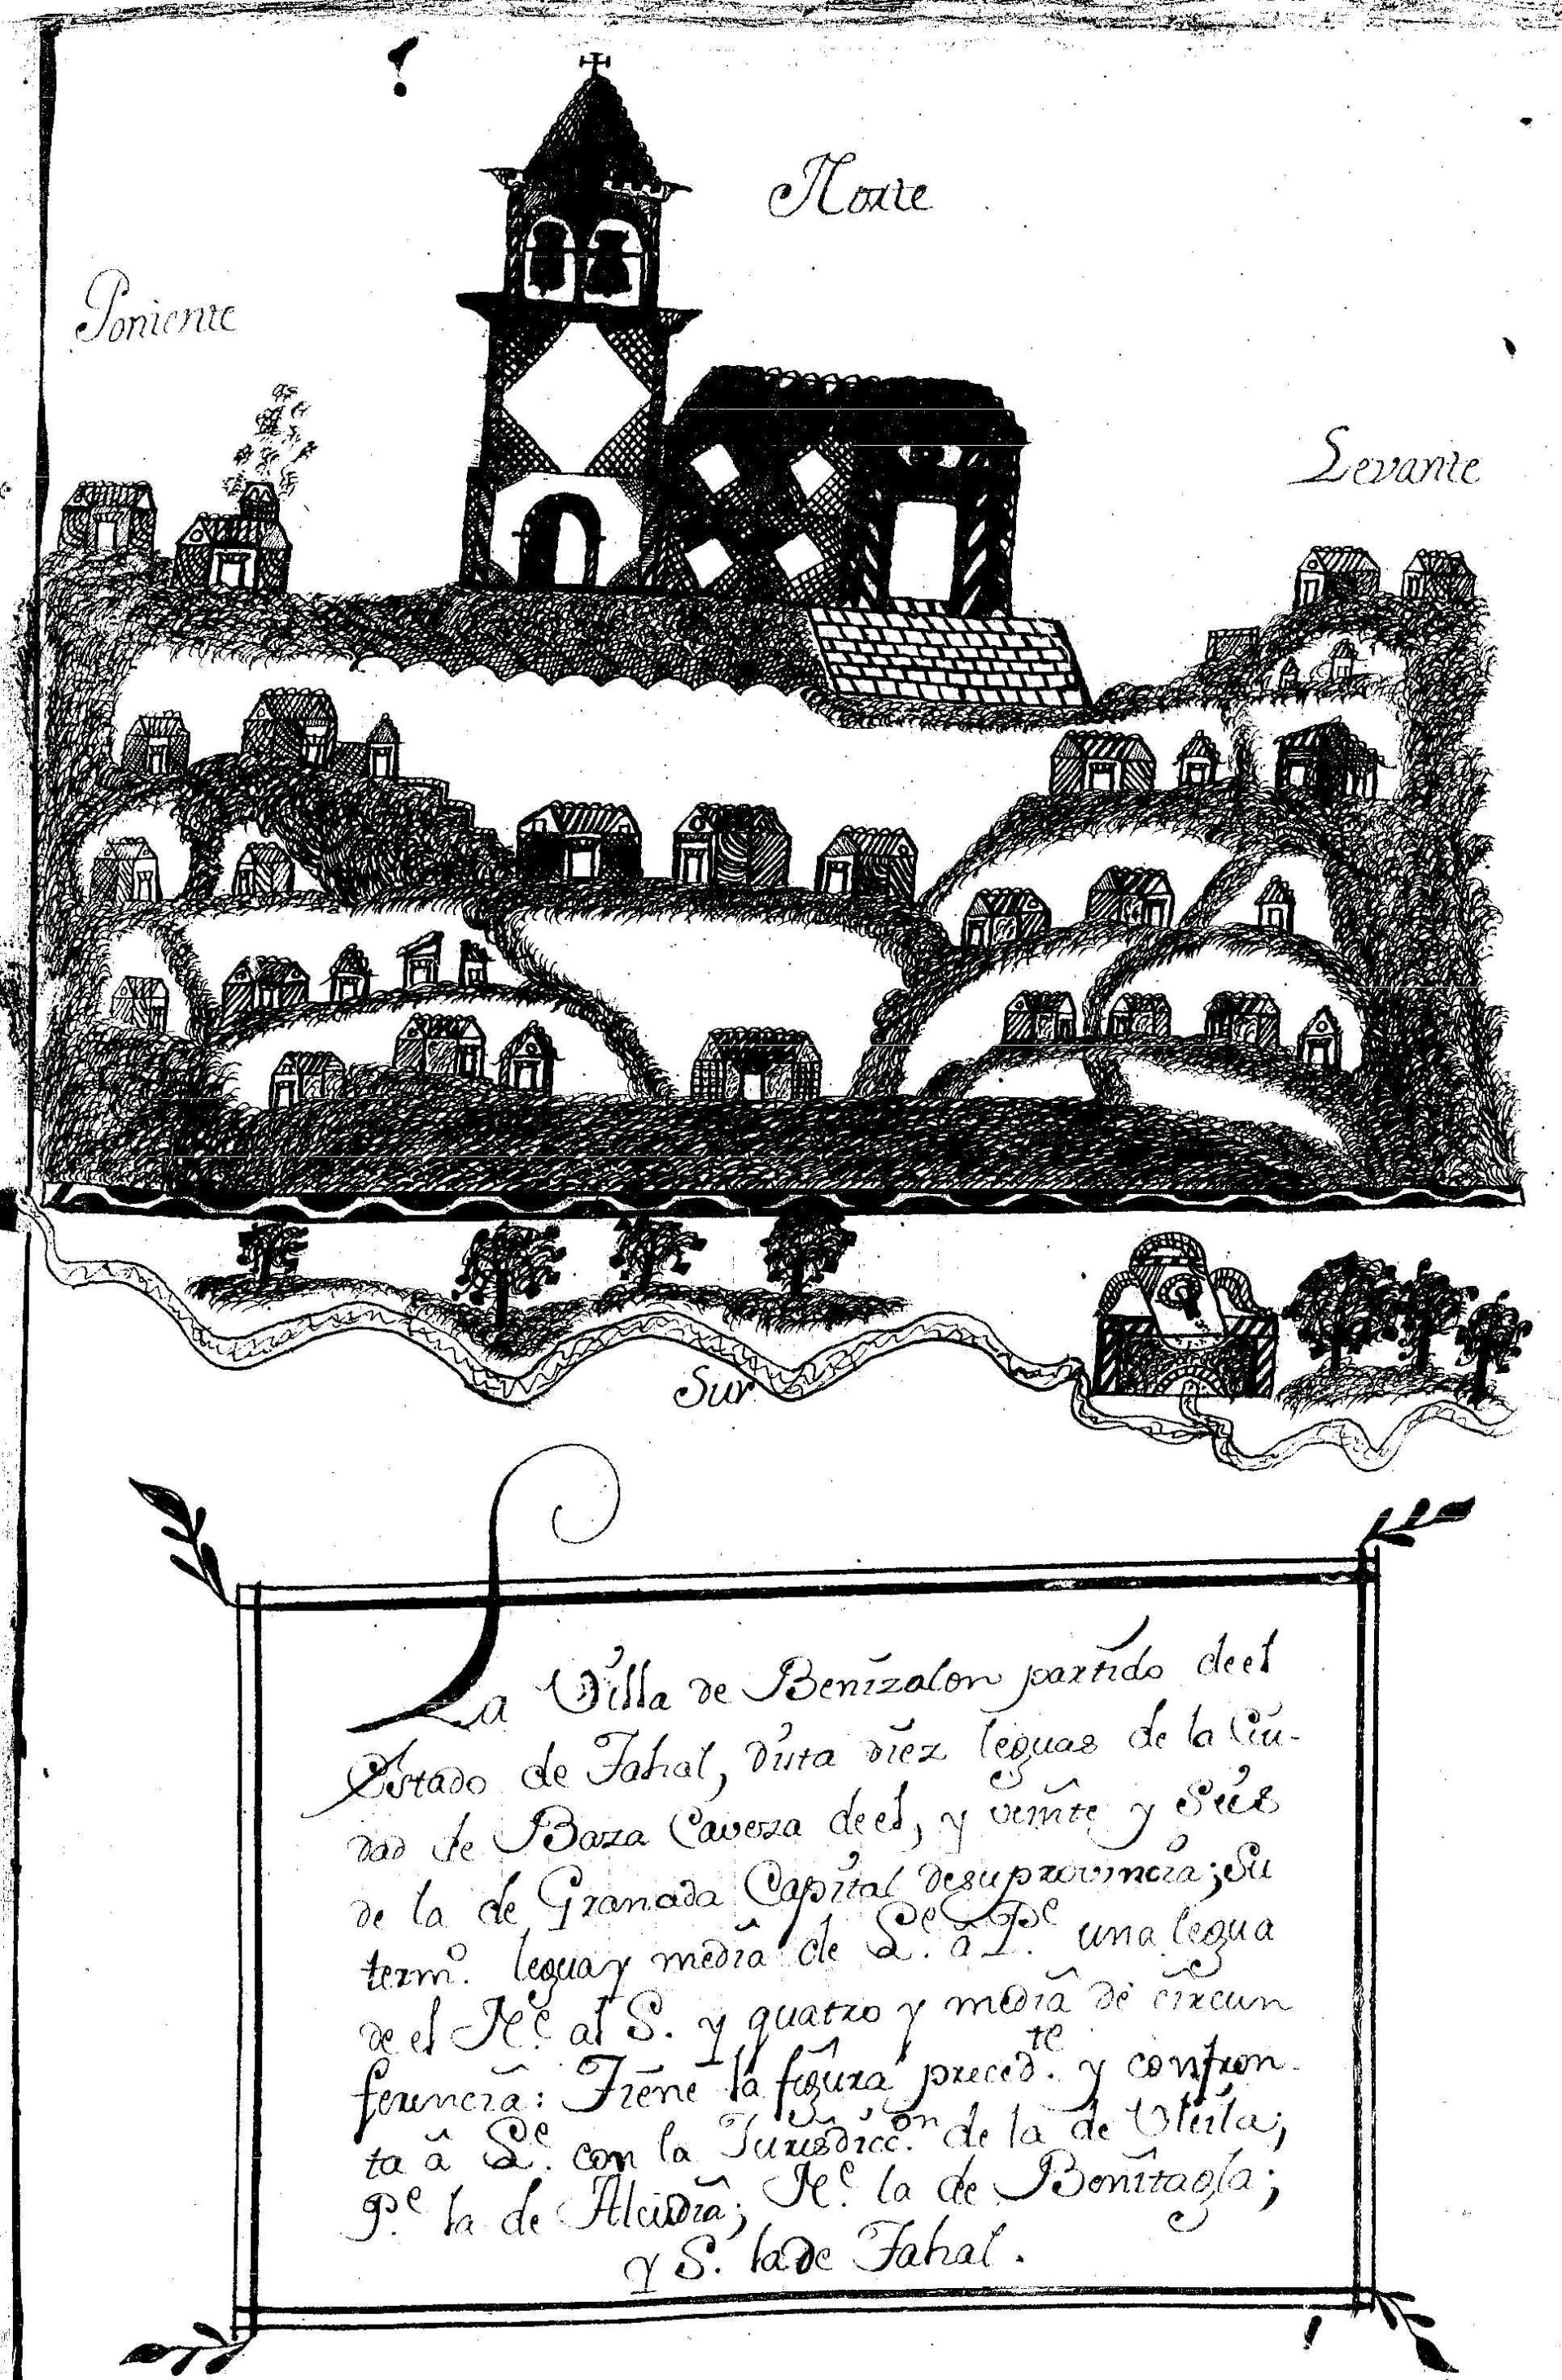 Norte
Poniente
Levante
Sur
La Villa de Benizalon partido de el
Estado de Tahal, dista diez leguas de la Ciu-
dad de Baza Caveza de el, y veinte y Seis
de la de Granada Capital de su provincia; Su
term.º legua y media de L.e â P.e una legua
de el N.e al S. y quatro y media de circun
ferencia: Tiene la figura preced.te y confron-
ta â L.e con la Jurisdicc.on de la de Uleila;
P.e la de Alcudia; N.e la de Benitagla;
y S. la de Tahal.